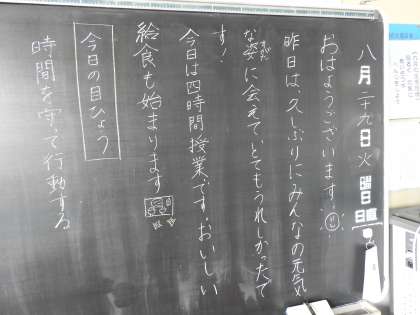 八月二十九日火曜日
日直
おはようございます!
昨日は、久しぶりにみんなの元気
な姿に会えて、とてもうれしかったで
すがた
す!
今日は四時間授業です。おいしい
給食も始まります
今日の目ひょう
時間を守って行動する